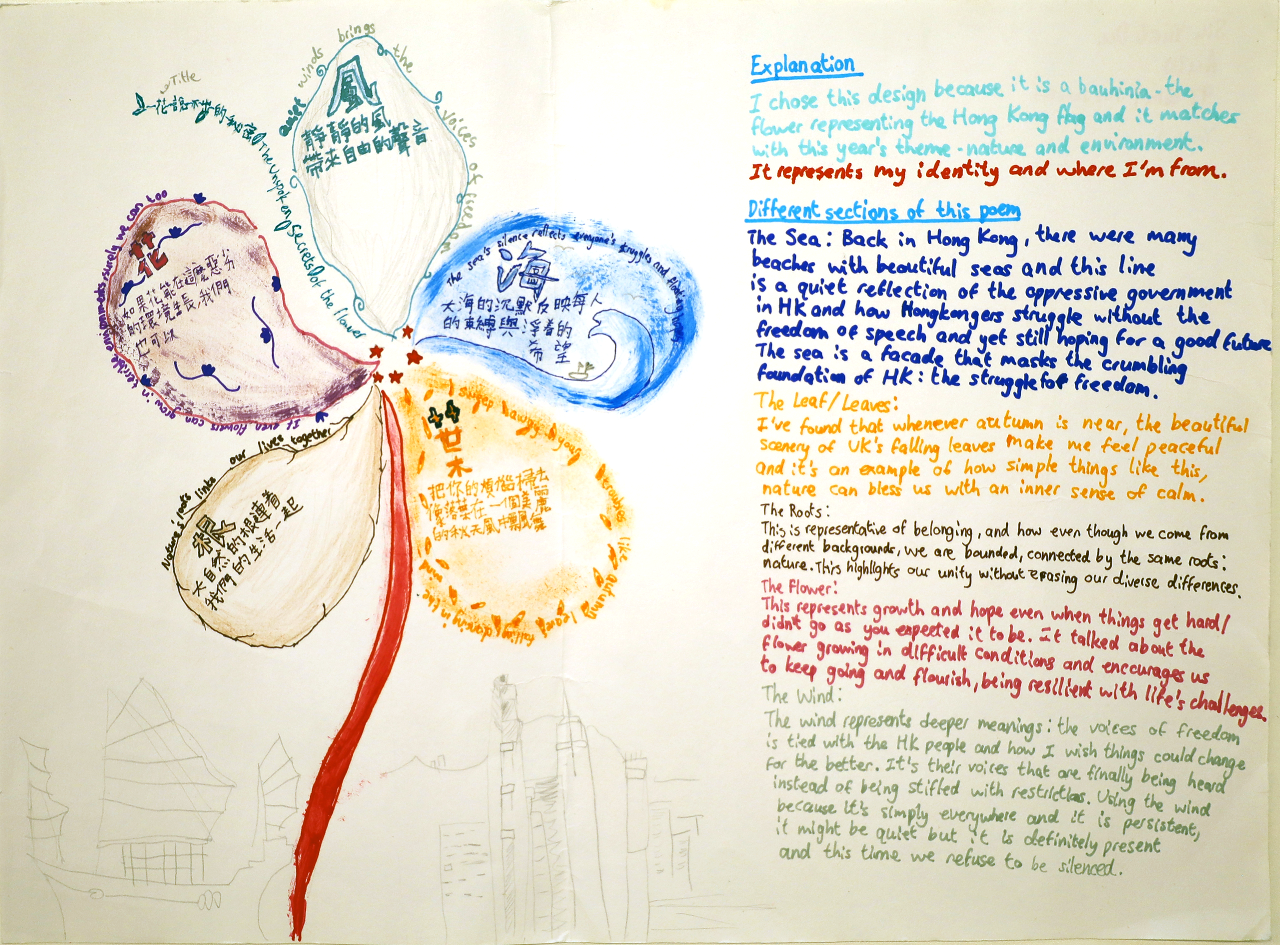 Title
一花說不出的秘密
The Unspoken Secrets of the flower
quiet winds brings the voices of freedom
風
靜靜的風
帶來自由的聲音
The sea's silence reflects everyone's struggles and
海
大海的沉默反映每人
的束縛與浮着的
希望
If even flowers can grow in terrible environments, surely we can too
花
如果花能在這麼惡劣
的環境生長我們
也可以
Nature's roots links our lives together
根
大自然的根連着
我們的生活一起
away your troubles like autumn leaves falling, dancing in the wind
葉
把你的煩惱掃去
像落葉在一個美麗
的秋天風中飄舞
Explanation
I chose this design because it is a bauhinia - the
flower representing the Hong Kong flag and it matches
with this year's theme - nature and environment.
It represents my identity and where I'm from.
Different sections of this poem
The Sea: Back in Hong Kong, there were many
beaches with beautiful seas and this line
is a quiet reflection of the oppressive government
in HK and how Hongkongers struggle without the
freedom of speech and yet still hoping for a good future
The sea is a facade that masks the crumbling
foundation of HK: the struggle for freedom.
The Leaf/Leaves:
I've found that whenever autumn is near, the beautiful
scenery of UK's falling leaves make me feel peaceful
and it's an example of how simple things like this,
nature can bless us with an inner sense of calm.
The Roots:
This is representative of belonging, and how even though we come from
different backgrounds, we are bounded, connected by the same roots:
nature. This highlights our unity without erasing our diverse differences.
The Flower:
This represents growth and hope even when things get hard/
didn't go as you expected it to be. It talked about the
flower growing in difficult conditions and encourages us
to keep going and flourish, being resilient with life's challenges.
The Wind:
The wind represents deeper meanings: the voices of freedom
is tied with the HK people and how I wish things could change
for the better. It's their voices that are finally being heard
instead of being stifled with restrictias. Using the wind
because it's simply everywhere and it is persistent,
it might be quiet but it is definitely present
and this time we refuse to be silenced.